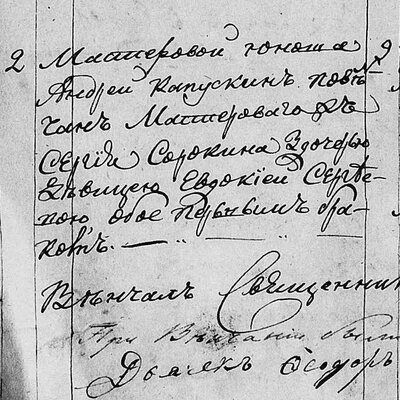 2 Мастеровой юноша 9
Андрей Капускинъ повѣ-
чанъ Мастероваго
Сергія Сорокина Здочерью
Дѣвицею Евдокіей Сергѣе-
вою обое первымъ бра-
комъ.
Вѣнчалъ Священник
При Вѣнчаніи были
Дьячекъ Ѳеодоръ